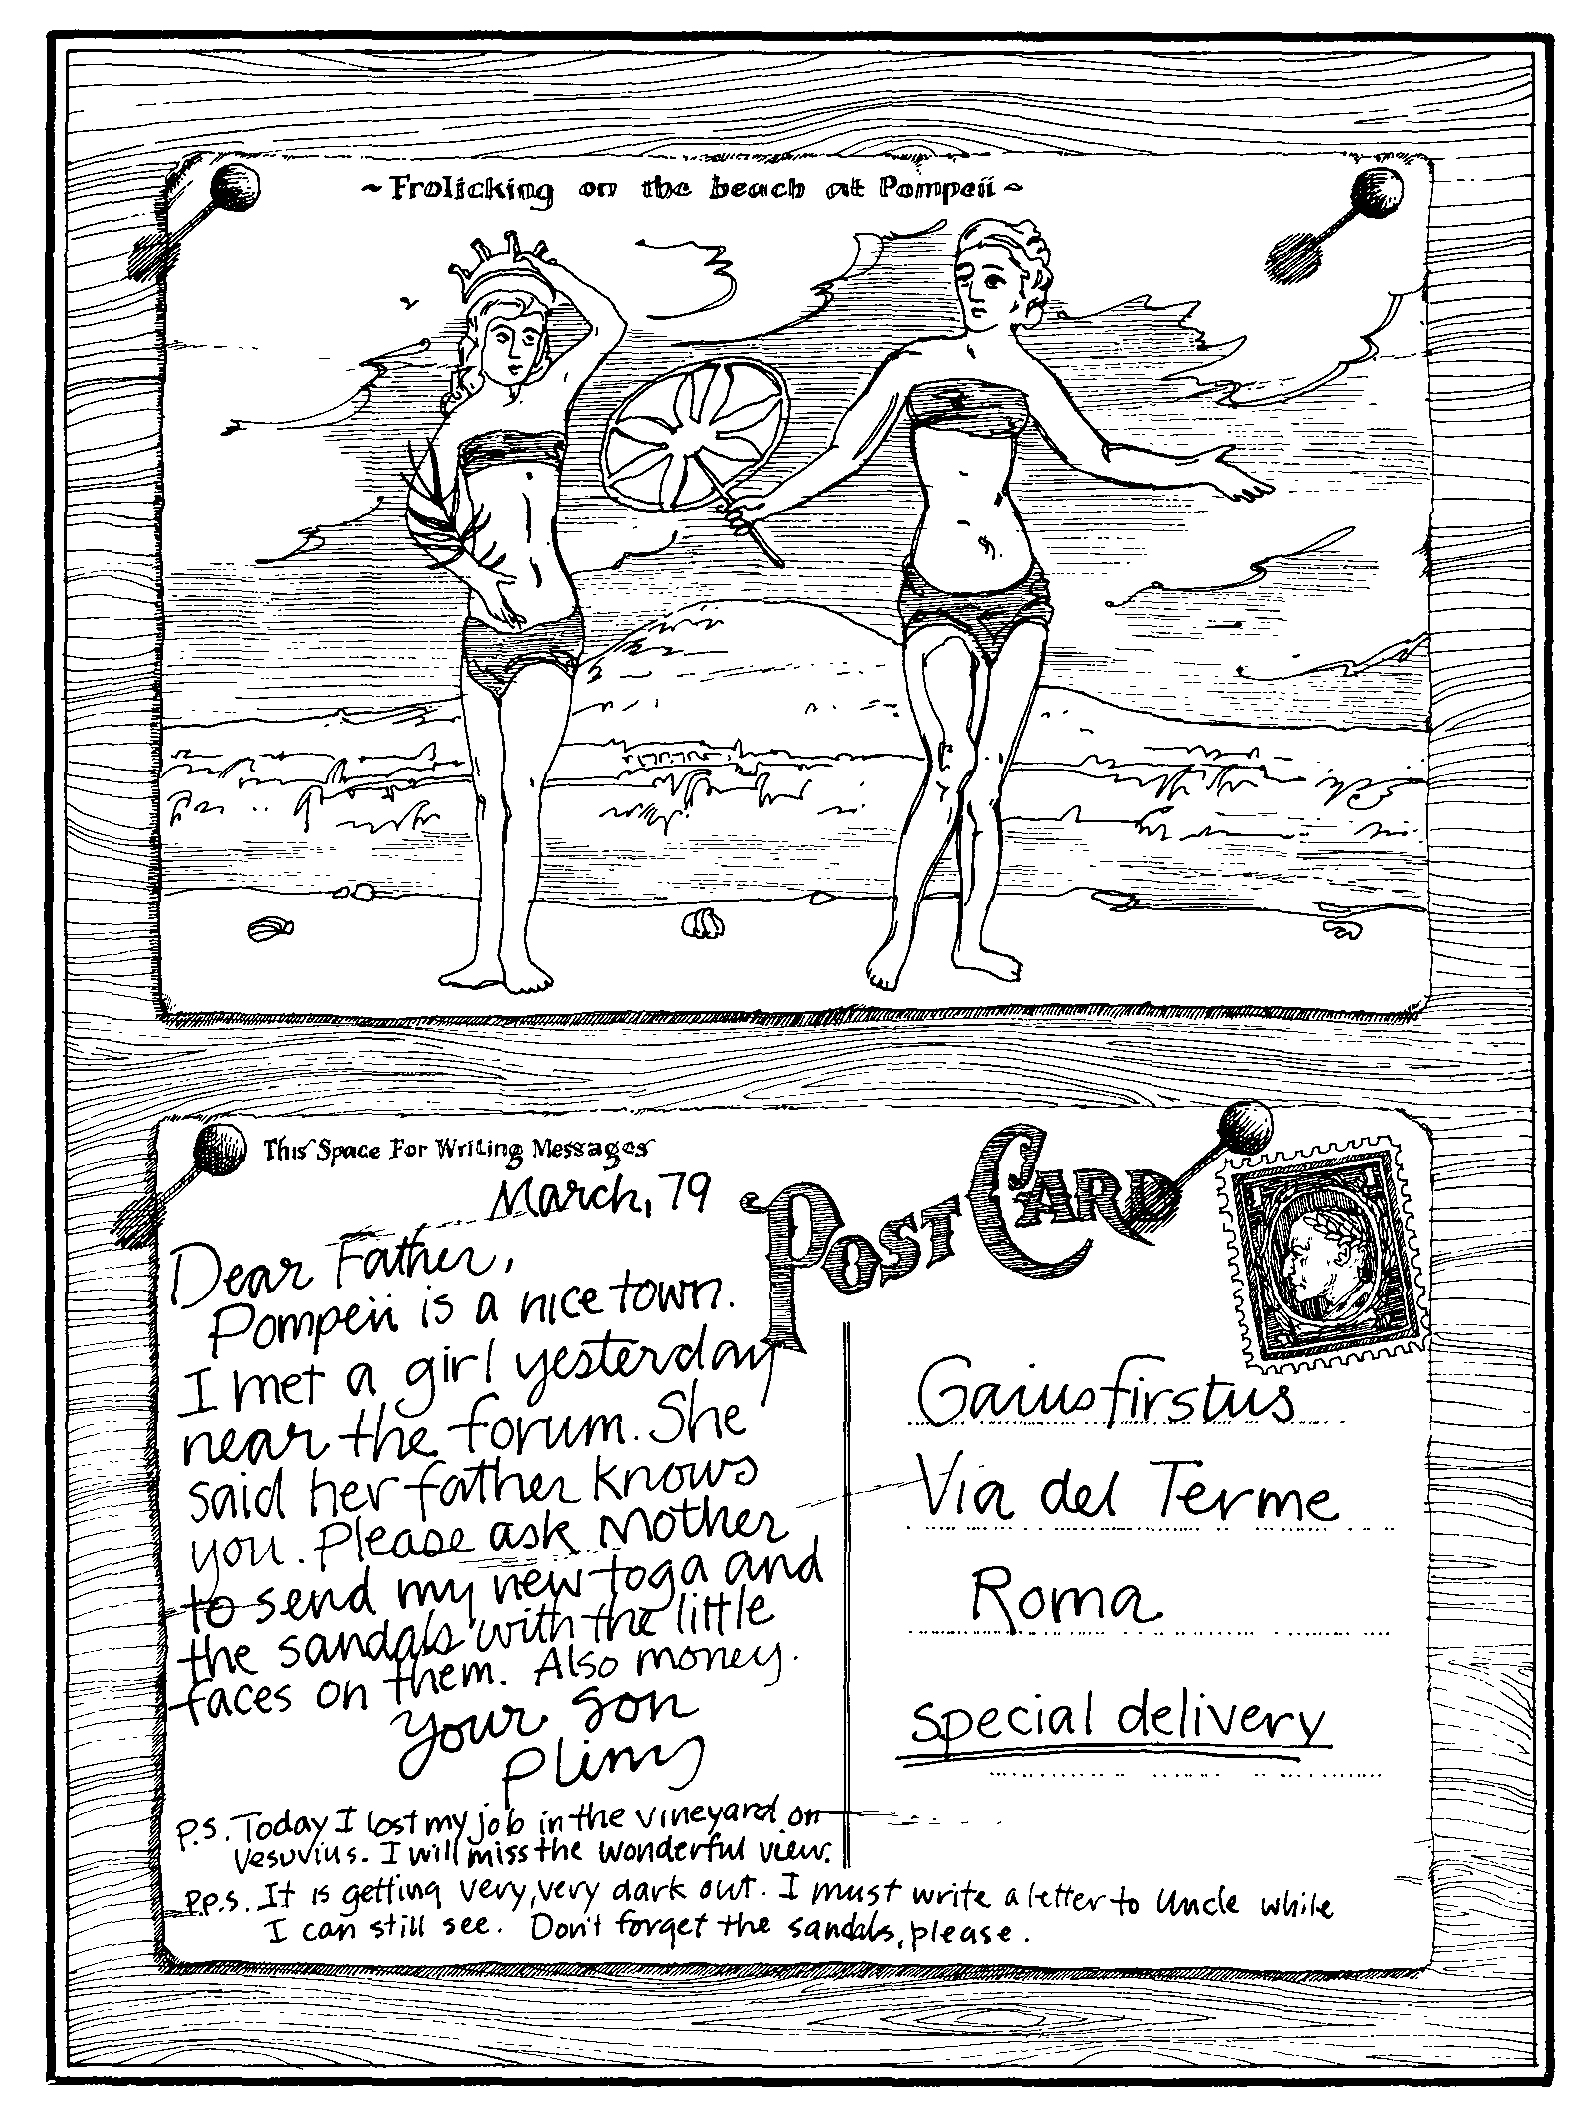 ~ Frolicking on the beach at Pompeii ~
This Space For Writing Messages
POST CARD
March, 79
Dear Father,
Pompeii is a nice town.
I met a girl yesterday
near the forum. She
said her father knows
you. Please ask Mother
to send my new toga and
the sandals with the little
faces on them. Also money.
your son
Pliny
P.S. Today I lost my job in the vineyard on
Vesuvius. I will miss the wonderful view.
P.P.S. It is getting very, very dark out. I must write a letter to Uncle while
I can still see. Don't forget the sandals, please.
Gaiusfirstus
Via del Terme
Roma
special delivery